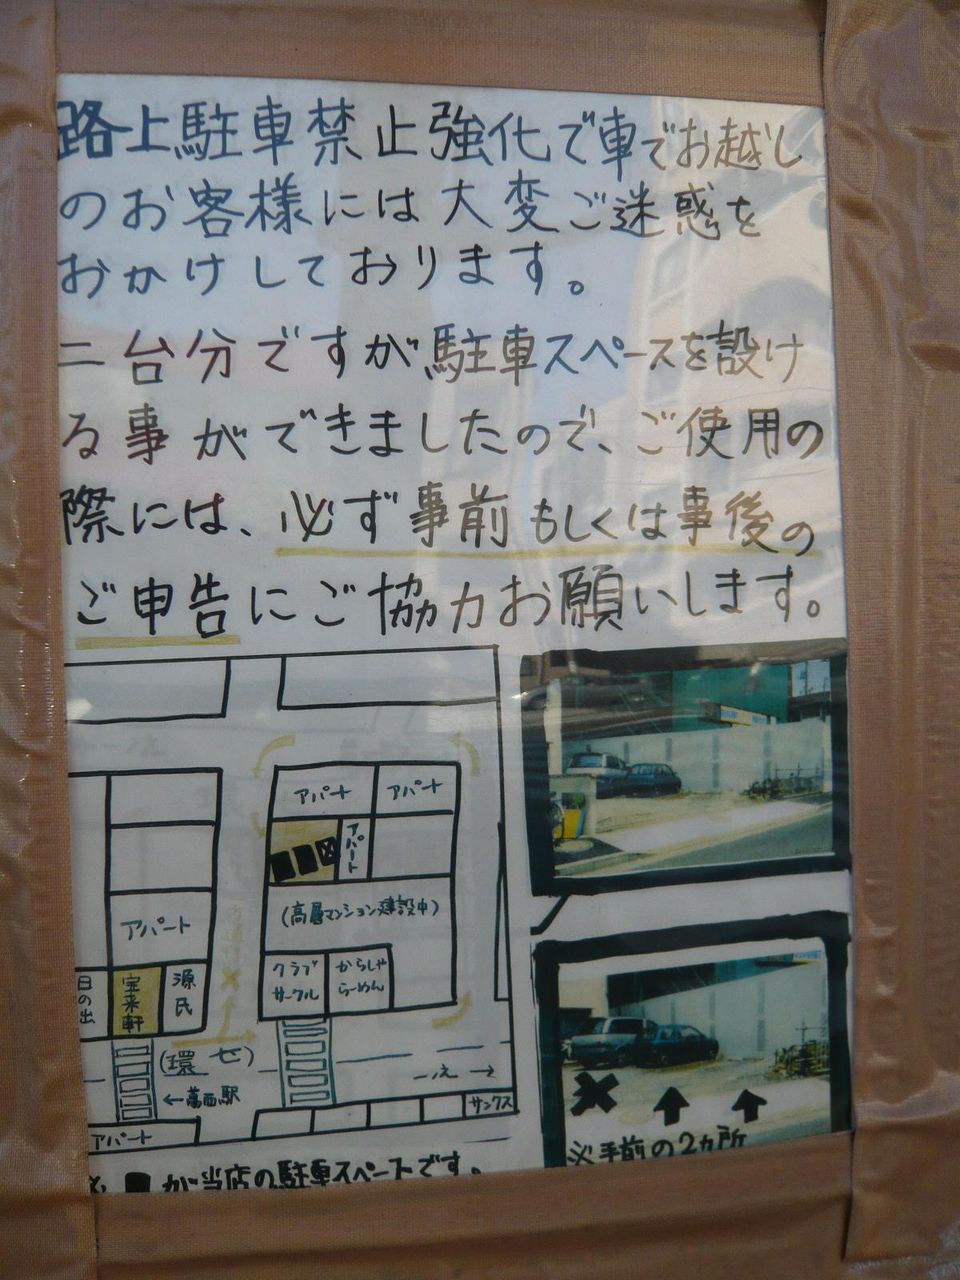 路上駐車禁止強化で車でお越し
のお客様には大変ご迷惑を
おかけしております。
二台分ですが駐車スペースを設け
る事ができましたので、ご使用の
際には、必ず事前もしくは事後の
ご申告にご協力お願いします。
アパート
アパート
アパート
(高層マンション建設中)
アパート
クラブ
サークル
からしや
らーめん
日の出
宝来軒
源氏
(環七)
←葛西駅
サンクス
アパート
■が当店の駐車スペースです。
※手前の2カ所